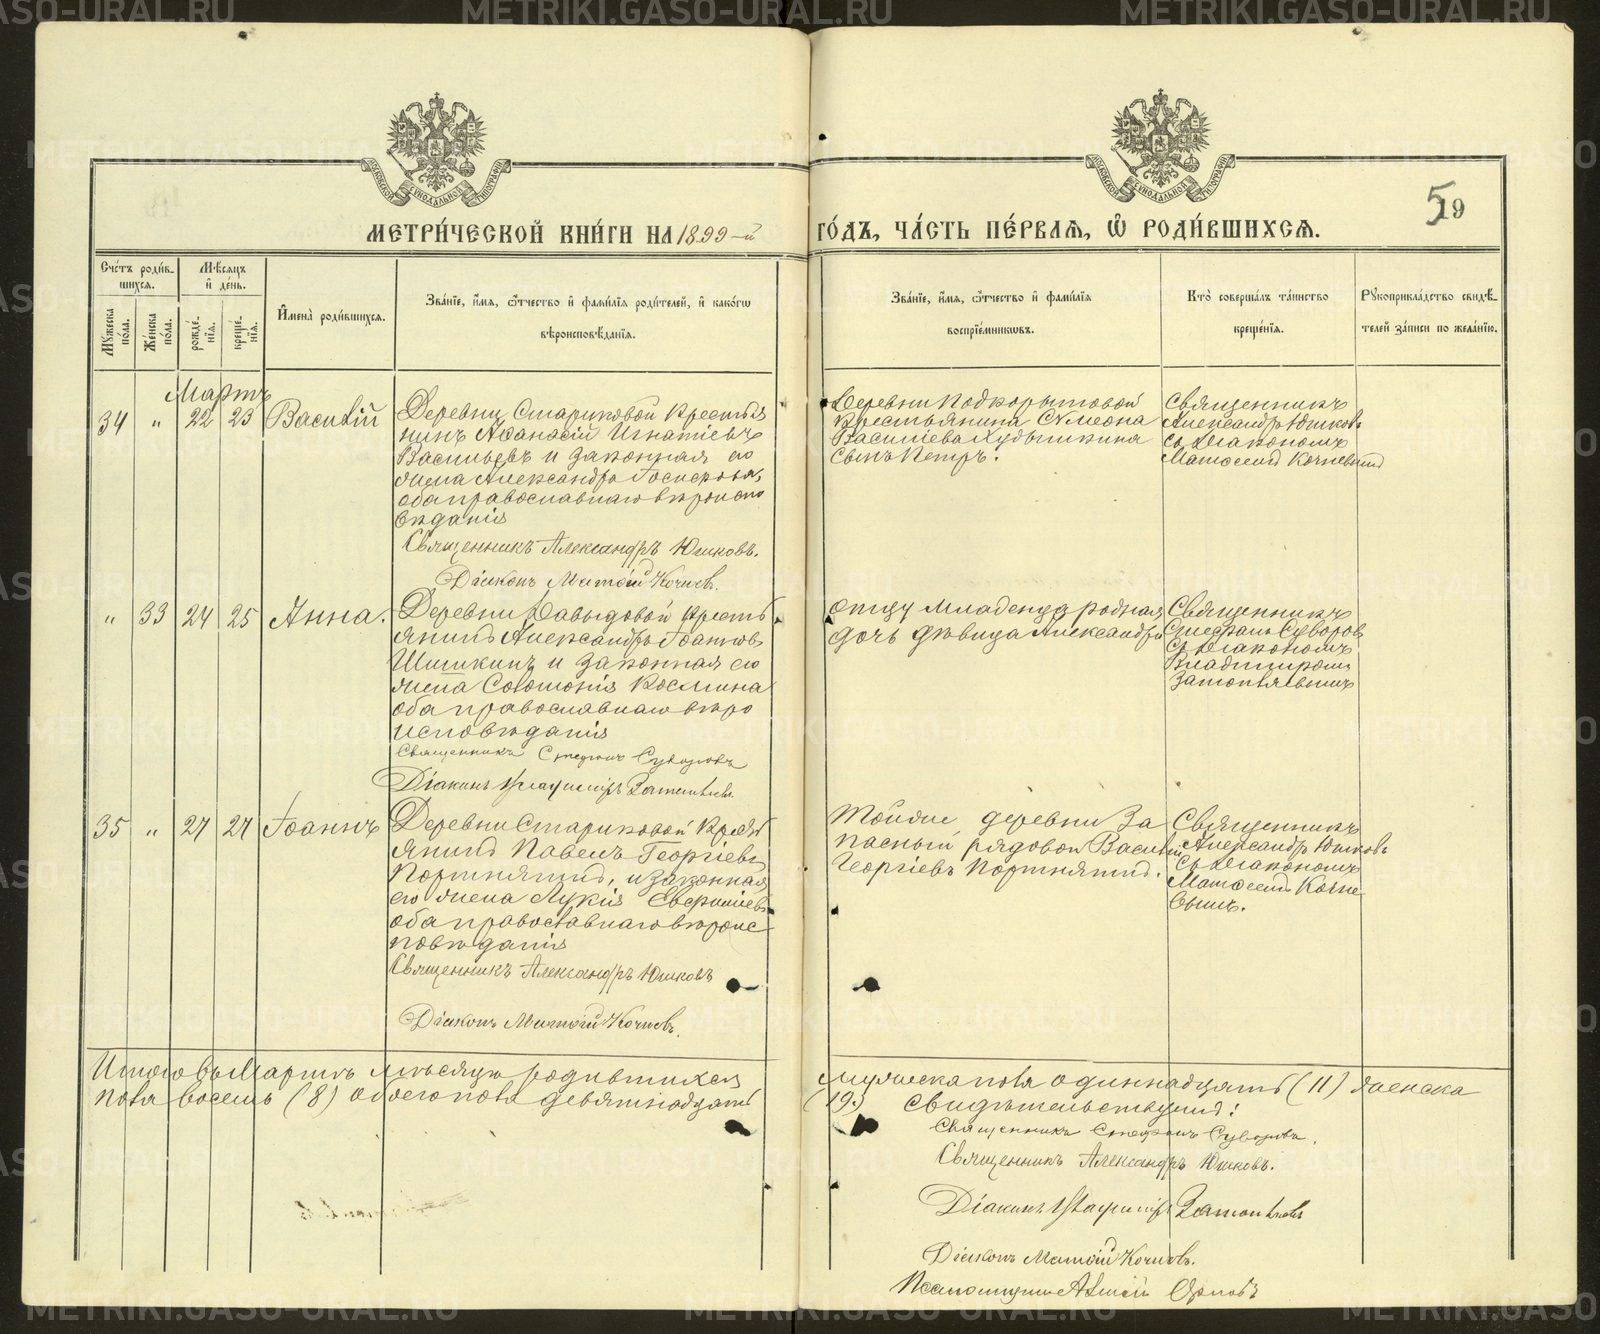 МЕТРИ́ЧЕСКОЙ КНИ́ГИ НА 1899-й
ГО́ДЪ, ЧА́СТЬ ПЕ́РВАѦ, Ѡ҆ РОДИ́ВШИХСѦ.
59
Сче́тъ роди́в-
шихсѧ.
Мѣ́сѧцъ
и҆ де́нь.
И҆мена̀ роди́вшихсѧ.
Зва́нїе, и҆́мѧ, ѻ҆́тчество и҆ фами́лїѧ роди́телей, и҆ како́гѡ
вѣроисповѣ́данїѧ.
Мꙋ́жеска
по́ла.
Же́нска
по́ла.
рожде́-
нїѧ.
креще́-
нїѧ.
Зва́нїе, и҆́мѧ, ѻ҆́тчество и҆ фами́лїѧ
воспрїе́мникѡвъ.
Кто̀ соверша́лъ та́инство
креще́нїѧ.
Рꙋкоприкла́дство свидѣ́-
телей за́писи по жела́нїю.
Мартъ
34 " 22 23 Василій
Деревни Стариковой крестья
нинъ Афанасій Игнатіевъ
Васильевъ и законная его
жена Александра
оба православнаго вѣроиспо
вѣданія
Священникъ Александръ Юшковъ.
Діаконъ Матѳій Кочневъ.
Деревни Подкорытовой
крестьянина Сѵмеона
Васильева Худышкина
сынъ Петръ.
Священникъ
Александръ Юшковъ
съ Діакономъ
Матѳеемъ Кочневымъ
" 33 24 25 Анна.
Деревни Давыдовой кресть
янинъ Александръ Іоанновъ
Шишкинъ и законная его
жена Соломонія Космина
оба православнаго вѣро
исповѣданія
Священникъ Стефанъ Суворовъ
Діаконъ Владиміръ Затопляевъ
Отцу младенца родная
дочь дѣвица Александра
Священникъ
Стефанъ Суворовъ
съ Діакономъ
Владиміромъ
Затопляевымъ
35 " 27 27 Іоаннъ
Деревни Стариковой крестья
янинъ Павелъ Георгіевъ
Портнягинъ, и законная
его жена Лукія
оба православнаго вѣроис
повѣданія
Священникъ Александръ Юшковъ
Діаконъ Матѳій Кочневъ.
Тойже деревни за
пасный рядовой Василій
Георгіевъ Портнягинъ.
Священникъ
Александръ Юшковъ
съ Діакономъ
Матѳеемъ Кочне
вымъ.
Итого въ Мартѣ мѣсяцѣ родившихся
мужеска пола одиннадцать (11) женска
пола восемь (8) обоего пола девятнадцать
(19.) Свидѣтельствуемъ:
Священникъ Стефанъ Суворовъ.
Священникъ Александръ Юшковъ.
Діаконъ Владиміръ Затопляевъ
Діаконъ Матѳій Кочневъ.
Псаломщикъ Орловъ
METRIKI.GASO-URAL.RU